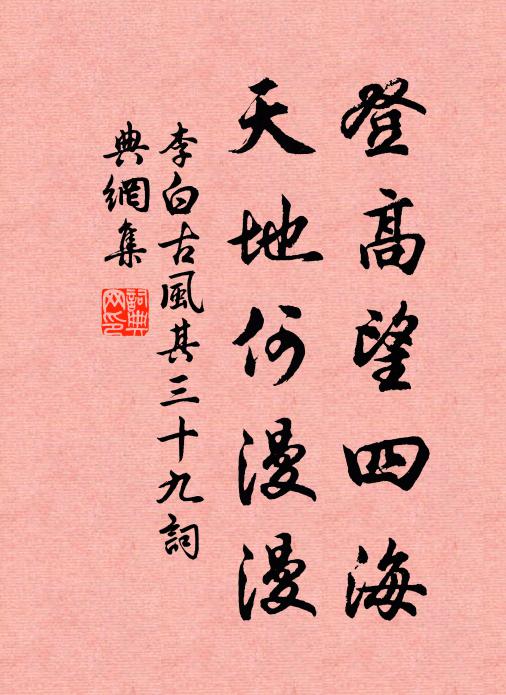 登高望四海
天地何漫漫
李白古風其三十九詞
典網集
詞典網印